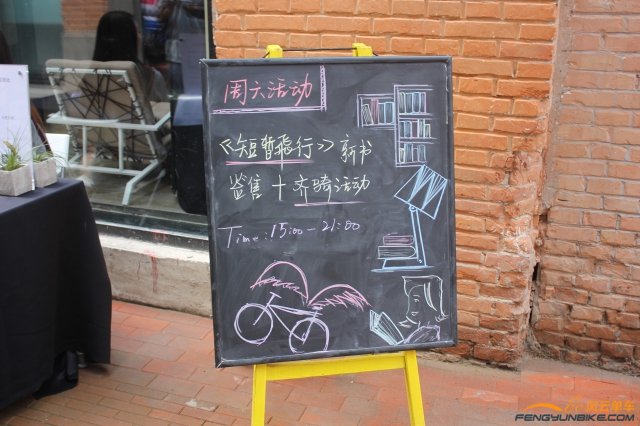 周六活动
《短暂飛行》新书
签售 + 齐骑活动
Time: 15:00 - 21:00
风云单车
FENGYUNBIKE.COM